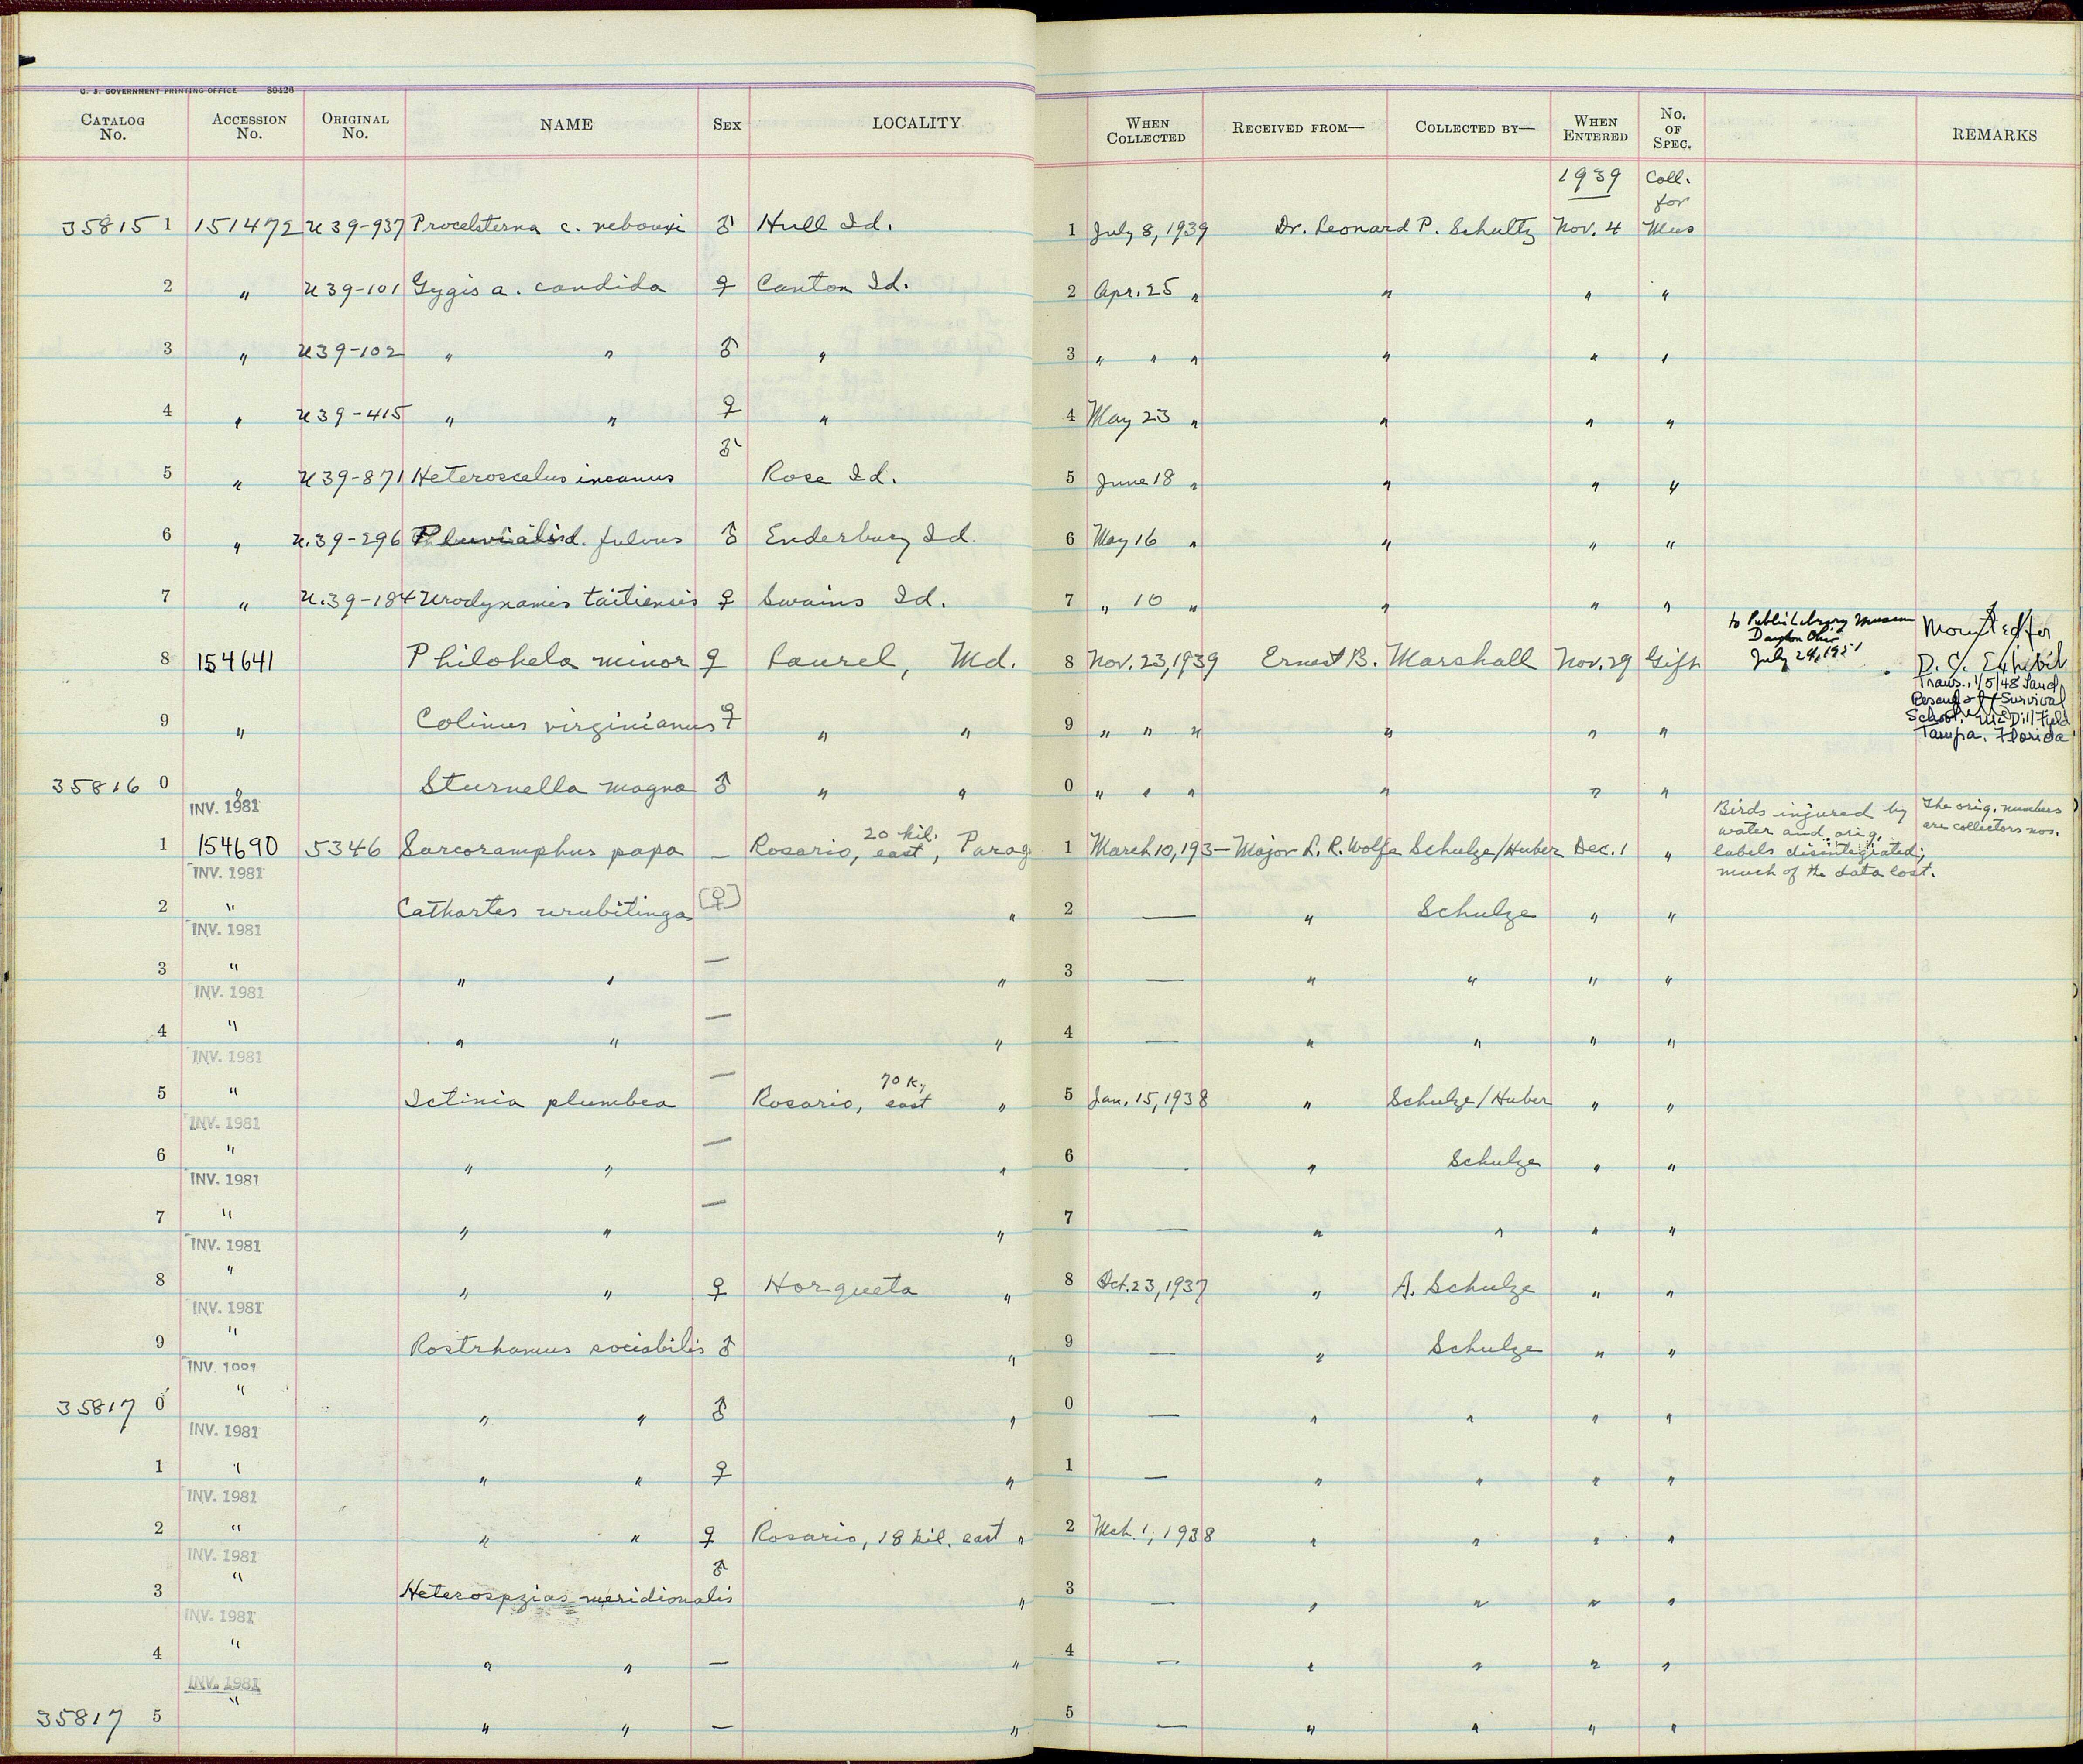 U. S. GOVERNMENT PRINTING OFFICE 80426
CATALOG No. ACCESSION No. ORIGINAL No. NAME SEX LOCALITY WHEN COLLECTED RECEIVED FROM— COLLECTED BY— WHEN ENTERED No. OF SPEC. REMARKS
1939 Coll. for
35815 1 151472 U39-937 Procelsterna c. nebouxi ♂ Hull Id. 1 July 8, 1939 Dr. Leonard P. Schultz Nov. 4 Mus
2 " U39-101 Gygis a. candida ♀ Canton Id. 2 Apr. 25 " " " "
3 " U39-102 " " ♂ " 3 " " " " " "
4 " U39-415 " " ♀ " 4 May 23 " " " "
5 " U39-871 Heteroscelus incanus ♂ Rose Id. 5 June 18 " " " "
6 " U.39-296 Pluvialis d. fulvus ♂ Enderbury Id. 6 May 16 " " " "
7 " U.39-184 Urodynamis taitiensis ♀ Swains Id. 7 " 10 " " " "
to Public Library Museum
Dayton Ohio
July 24, 1951
Mounted for
D.C. Exhibit
Trans., 1/5/48 Land
Rescue & Survival
School, McDill Field
Tampa, Florida
8 154641 Philohela minor ♀ Laurel, Md. 8 Nov. 23, 1939 Ernest B. Marshall Nov. 29 Gift
9 " Colinus virginianus ♀ " " 9 " " " " " "
35816 0 " Sturnella magna ♂ " " 0 " " " " " "
INV. 1981
1 154690 5346 Sarcoramphus papa — Rosario, 20 kil. east, Parag 1 March 10, 193— Major L. R. Wolfe Schulze/Huber Dec. 1 "
Birds injured by
water and orig.
labels disintegrated;
much of the data lost.
The orig. numbers
are collectors nos.
INV. 1981
2 " Cathartes urubitinga [♀] " 2 — " Schulze " "
INV. 1981
3 " " " — " 3 — " " " "
INV. 1981
4 " " " — " 4 — " " " "
INV. 1981
5 " Ictinia plumbea — Rosario, 70 K. east " 5 Jan. 15, 1938 " Schulze/Huber " "
INV. 1981
6 " " " — " 6 — " Schulze " "
INV. 1981
7 " " " — " 7 — " " " "
INV. 1981
8 " " " ♀ Horqueta " 8 Oct. 23, 1937 " A. Schulze " "
INV. 1981
9 " Rostrhamus sociabilis ♂ " 9 — " Schulze " "
INV. 1981
35817 0 " " " ♂ " 0 — " " " "
INV. 1981
1 " " " ♀ " 1 — " " " "
INV. 1981
2 " " " ♀ Rosario, 18 kil. east " 2 Mch. 1, 1938 " " " "
INV. 1981
3 " Heterospzias meridionalis ♂ " 3 — " " " "
INV. 1981
4 " " " — " 4 — " " " "
INV. 1981
35817 5 " " " — " 5 — " " " "